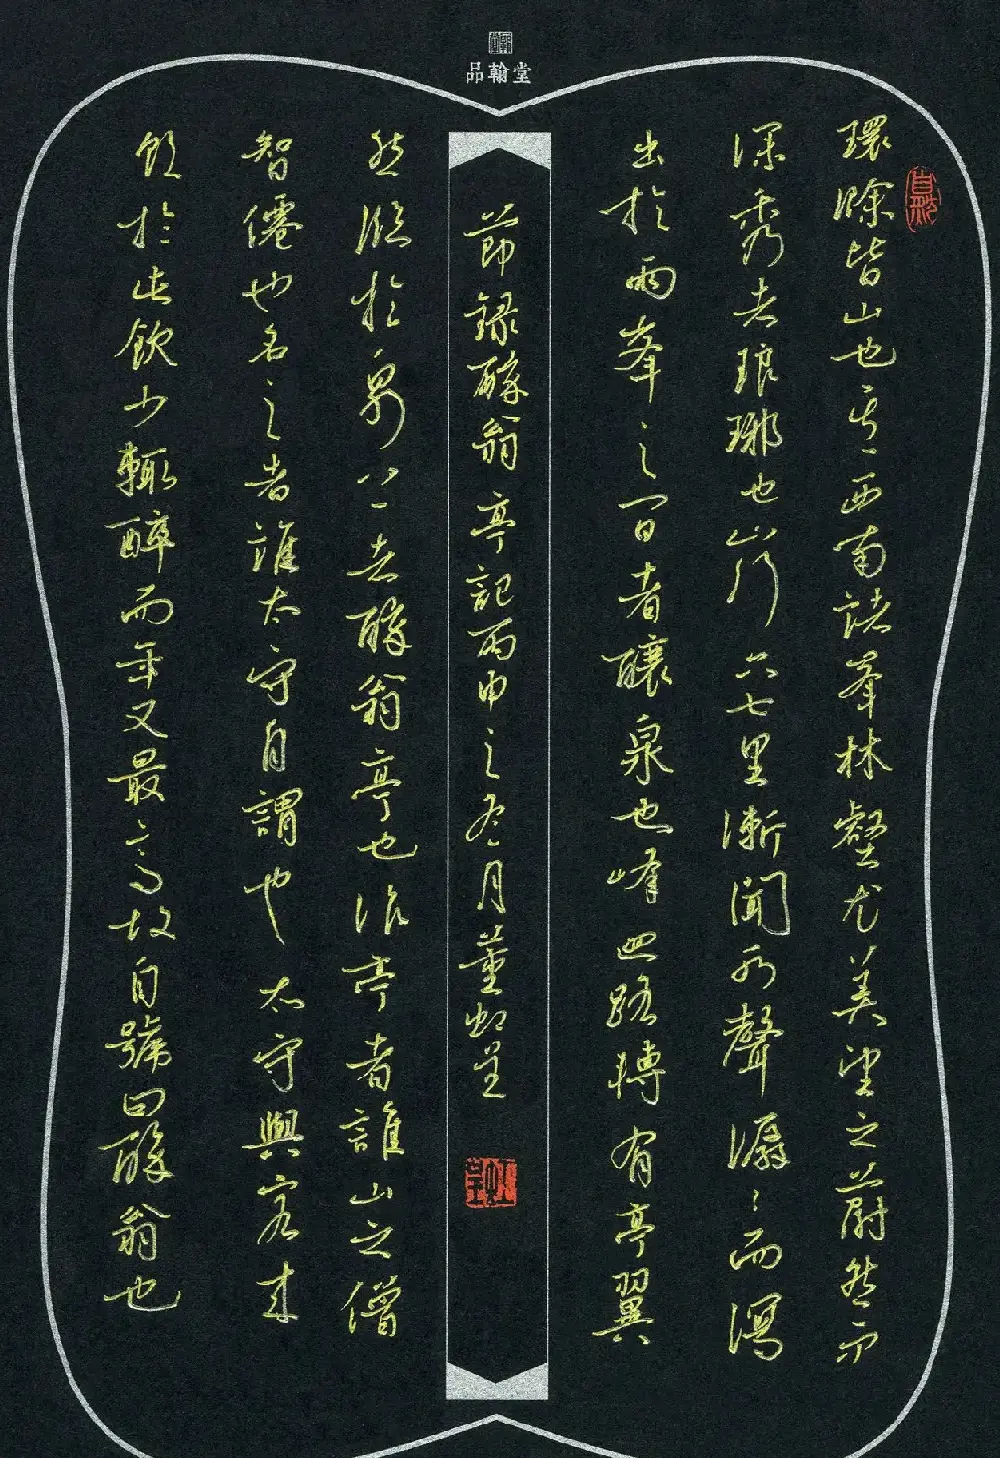 品翰堂
環滁皆山也其西南諸峯林壑尤美望之蔚然而
深秀者琅琊也山行六七里漸聞水聲潺〻而瀉
出於兩峯之間者釀泉也峰回路轉有亭翼
然臨於泉上者醉翁亭也作亭者誰山之僧
智僊也名之者誰太守自謂也太守與客來
飲於此飲少輒醉而年又最高故自號曰醉翁也
節録醉翁亭記丙申之冬月董虹呈